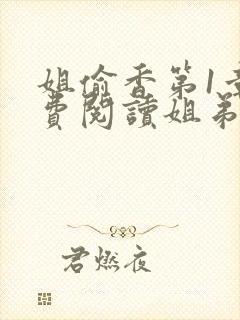 姐偷香第1章
費閱讀姐弟
君燃夜